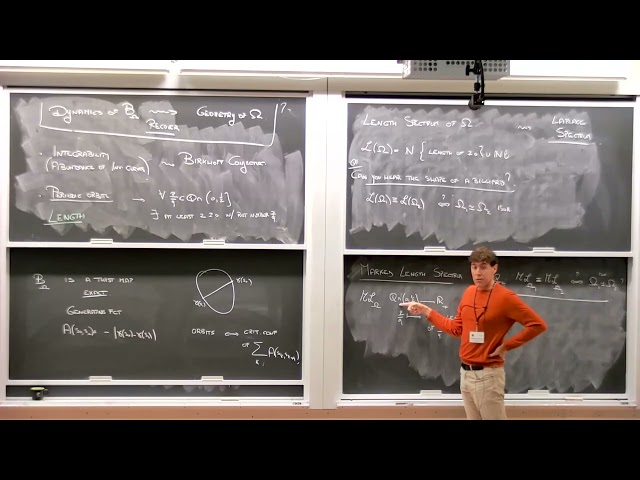 DYNAMICS OF B_Ω ⟿ GEOMETRY OF Ω ?
RECOVER
· INTEGRABILITY
(ABUNDANCE OF INV. CURVES) ~ BIRKHOFF CONJECTURE
· PERIODIC ORBITS → ∀ p/q ∈ Q ∩ (0, 1/2]
LENGTH ∃ AT LEAST 2 P.O W/ ROT NUMBER p/q
B_Ω IS A TWIST MAP
EXACT
GENERATING FCT
γ(s_1)
γ(s_0)
ORBITS ⟷ CRIT. CONF
OF
LENGTH SPECTRUM OF Ω ⟿ LAPLACE
SPECTRUM
L(Ω) = N { LENGTH OF P.O } ∪ N ℓ
Q:
CAN YOU HEAR THE SHAPE OF A BILLIARD ?
L(Ω_1) ≡ L(Ω_2) ⟺? Ω_1 ≃ Ω_2 ISOM
MARKED LENGTH SPECTRUM
ML_Ω : Q ∩ (0, 1/2] → R_+
p/q
ML_Ω1 ≡ ML_Ω2 ⟺? Ω_1 ≃ Ω_2